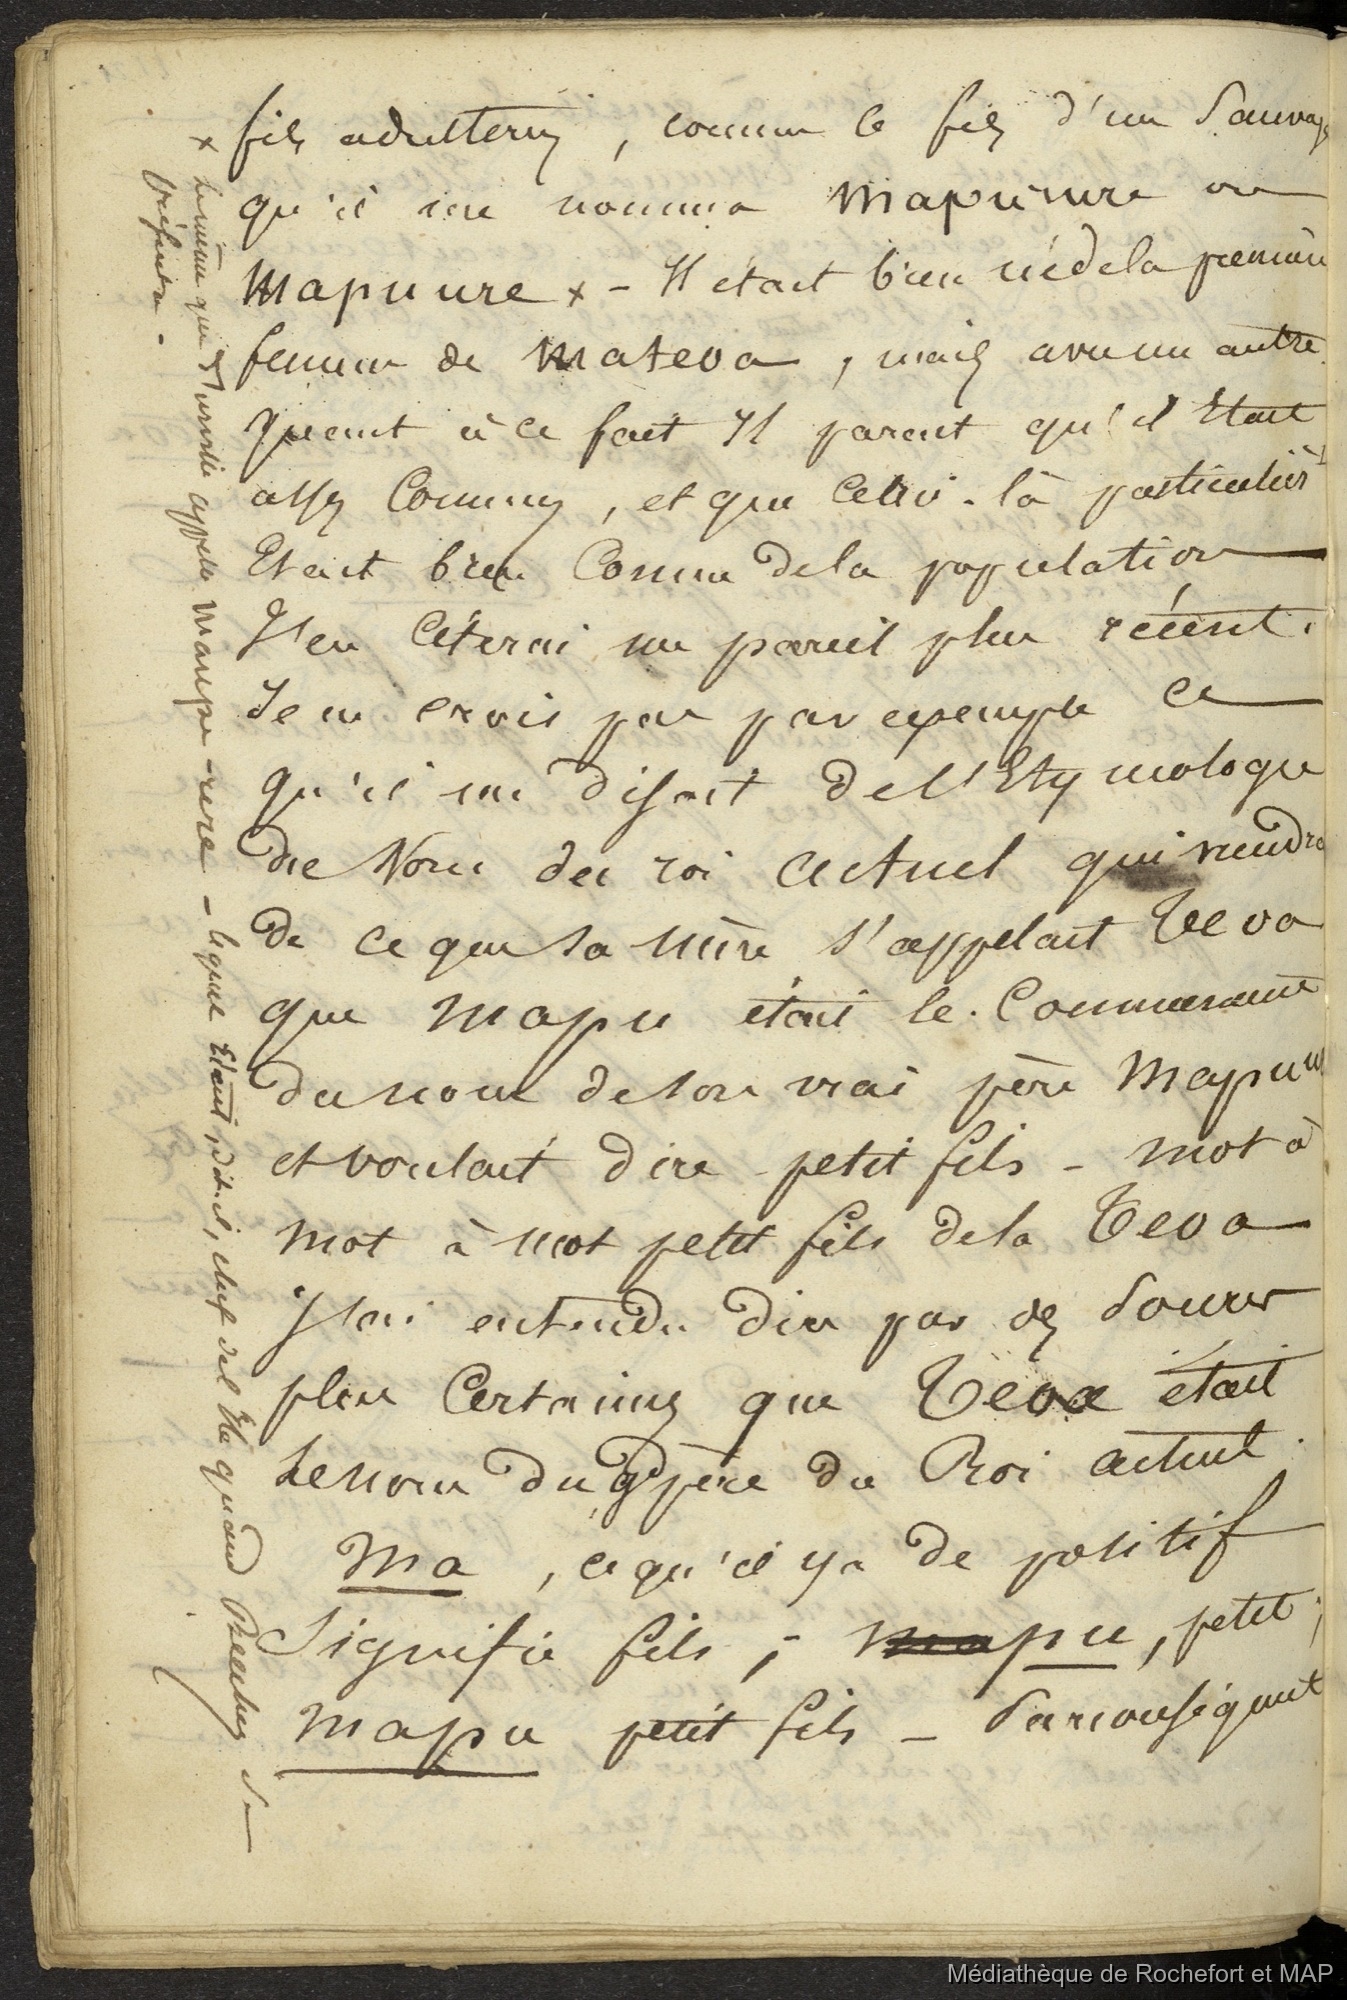 fils adulterin, comme le fils d'un Sauvage
qu'il me nomma Mapurure ou
Mapuure x - Il était bien né de la première
femme de Mateoa, mais avec un autre.
Quant à ce fait Il parait qu'il Etait
assez Commun, et que Celui-là particulièr
Etait bien Connu de la population
J'en Citerai un pareil plus récent.
Je ne crois pas par exemple ce
qu'il me disait de l'Etymologie
du Nom du roi actuel qui viendra
de ce que sa mère s'appelait Teoa
que Mapu était le Commencement
du nom de son vrai père Mapuu
et voulait dire petit fils - mot à
mot à mot petit fils de la Teoa
J'ai entendu dire par des Sources
plus Certaines que Teoa était
le nom du gd père du Roi actuel.
Ma, ce qu'il y a de positif
Signifie fils; mapu, petit;
Mapu petit fils - Par conséquent
x le même que appelle Maupu-rere - lequel Etait, dit-il, chef de l'Ile quand Beechey s'y
présenta.
Médiathèque de Rochefort et MAP